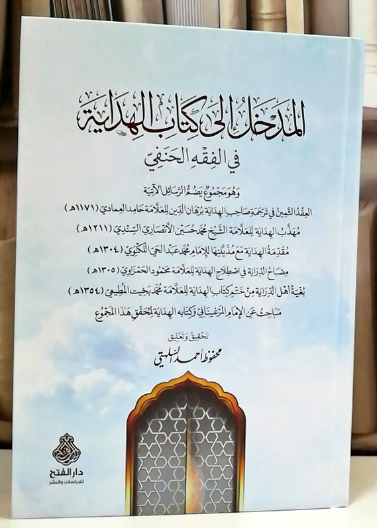 المدخل إلى كتاب الهداية
في الفقه الحنفي
وهو مجموع يضم الرسائل الآتية
العقد الثمين في ترجمة صاحب الهداية برهان الدين للعلامة حامد العمادي (١١٧١هـ)
مهذب الهداية للعلامة الشيخ محمد حسين الأنصاري السندي (١٢١١هـ)
مقدمة الهداية مع مذيلتها للإمام محمد عبد الحي اللكنوي (١٣٠٤هـ)
مصباح الدراية في اصطلاح الهداية للعلامة محمود الحمزاوي (١٣٠٥هـ)
بغية أهل الدراية من ختم كتاب الهداية للعلامة محمد بخيت المطيعي (١٣٥٤هـ)
مباحث عن الإمام المرغيناني وكتابه الهداية لمحقق هذا المجموع
تحقيق وتعليق
محفوظ أحمد السلهتي
دار الفتح
للدراسات والنشر